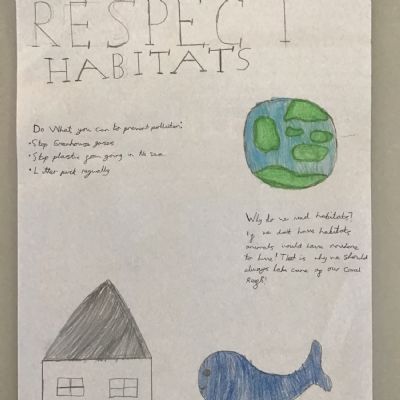 RESPECT
HABITATS
Do What you can to prevent pollution:
•Stop Greenhouse gases
•Stop plastic from going in the sea
•Litter pick regually
Why do we need habitats?
If we didt have habitats
animals would have nowhere
to live! That is why we should
always take care of our Coral
Reefs!